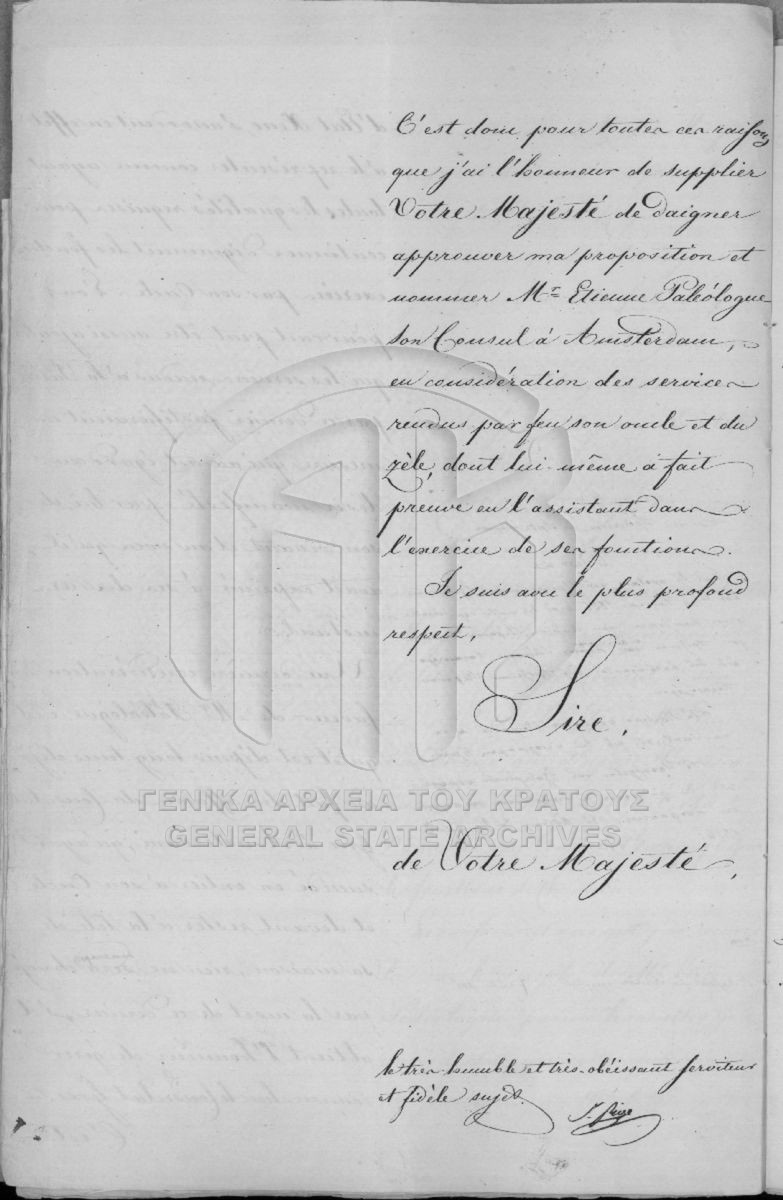 C'est donc pour toutes ces raisons
que j'ai l'honneur de supplier
Votre Majesté de daigner
approuver ma proposition et
nommer Mr Etienne Paléologue
son Consul à Amsterdam,
en considération des services
rendus par feu son oncle et du
zèle, dont lui-même à fait
preuve en l'assistant dans
l'exercice de ses fonctions.
Je suis avec le plus profond
respect,
Sire,
ΓΕΝΙΚΑ ΑΡΧΕΙΑ ΤΟΥ ΚΡΑΤΟΥΣ
GENERAL STATE ARCHIVES
de Votre Majesté,
le très-humble et très-obéissant serviteur
et fidèle sujet.